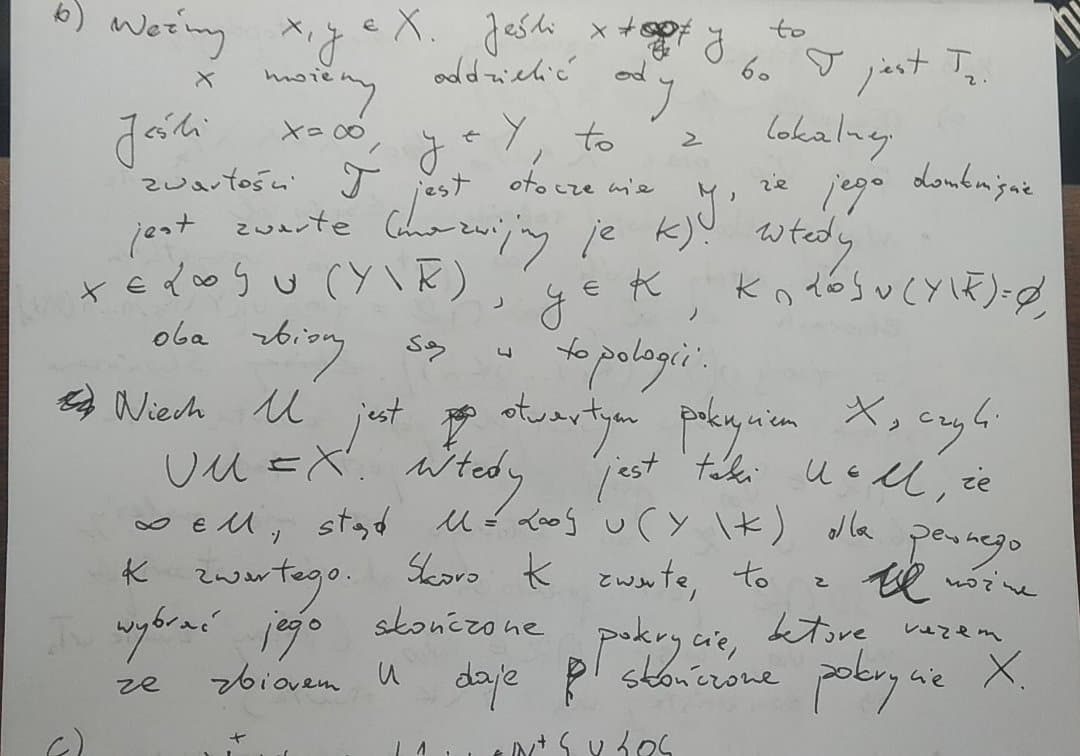 b) Weźmy x, y ∈ X. Jeśli x ≠ ∞ ≠ y to
x możemy oddzielić od y bo 𝒯 jest T₂.
Jeśli x = ∞, y ∈ Y, to z lokalnej
zwartości 𝒯 jest otoczenie y, że jego domknięcie
jest zwarte (nazwijmy je K). Wtedy
x ∈ {∞} ∪ (Y \ K̅), y ∈ K, K ∩ {∞} ∪ (Y \ K̅) = ∅,
oba zbiory są w topologii.
Niech 𝒰 jest otwartym pokryciem X, czyli
∪𝒰 = X. Wtedy jest taki U ∈ 𝒰, że
∞ ∈ U, stąd U = {∞} ∪ (Y \ K) dla pewnego
K zwartego. Skoro K zwarte, to z 𝒰 można
wybrać jego skończone pokrycie, które razem
ze zbiorem U daje skończone pokrycie X.
c)